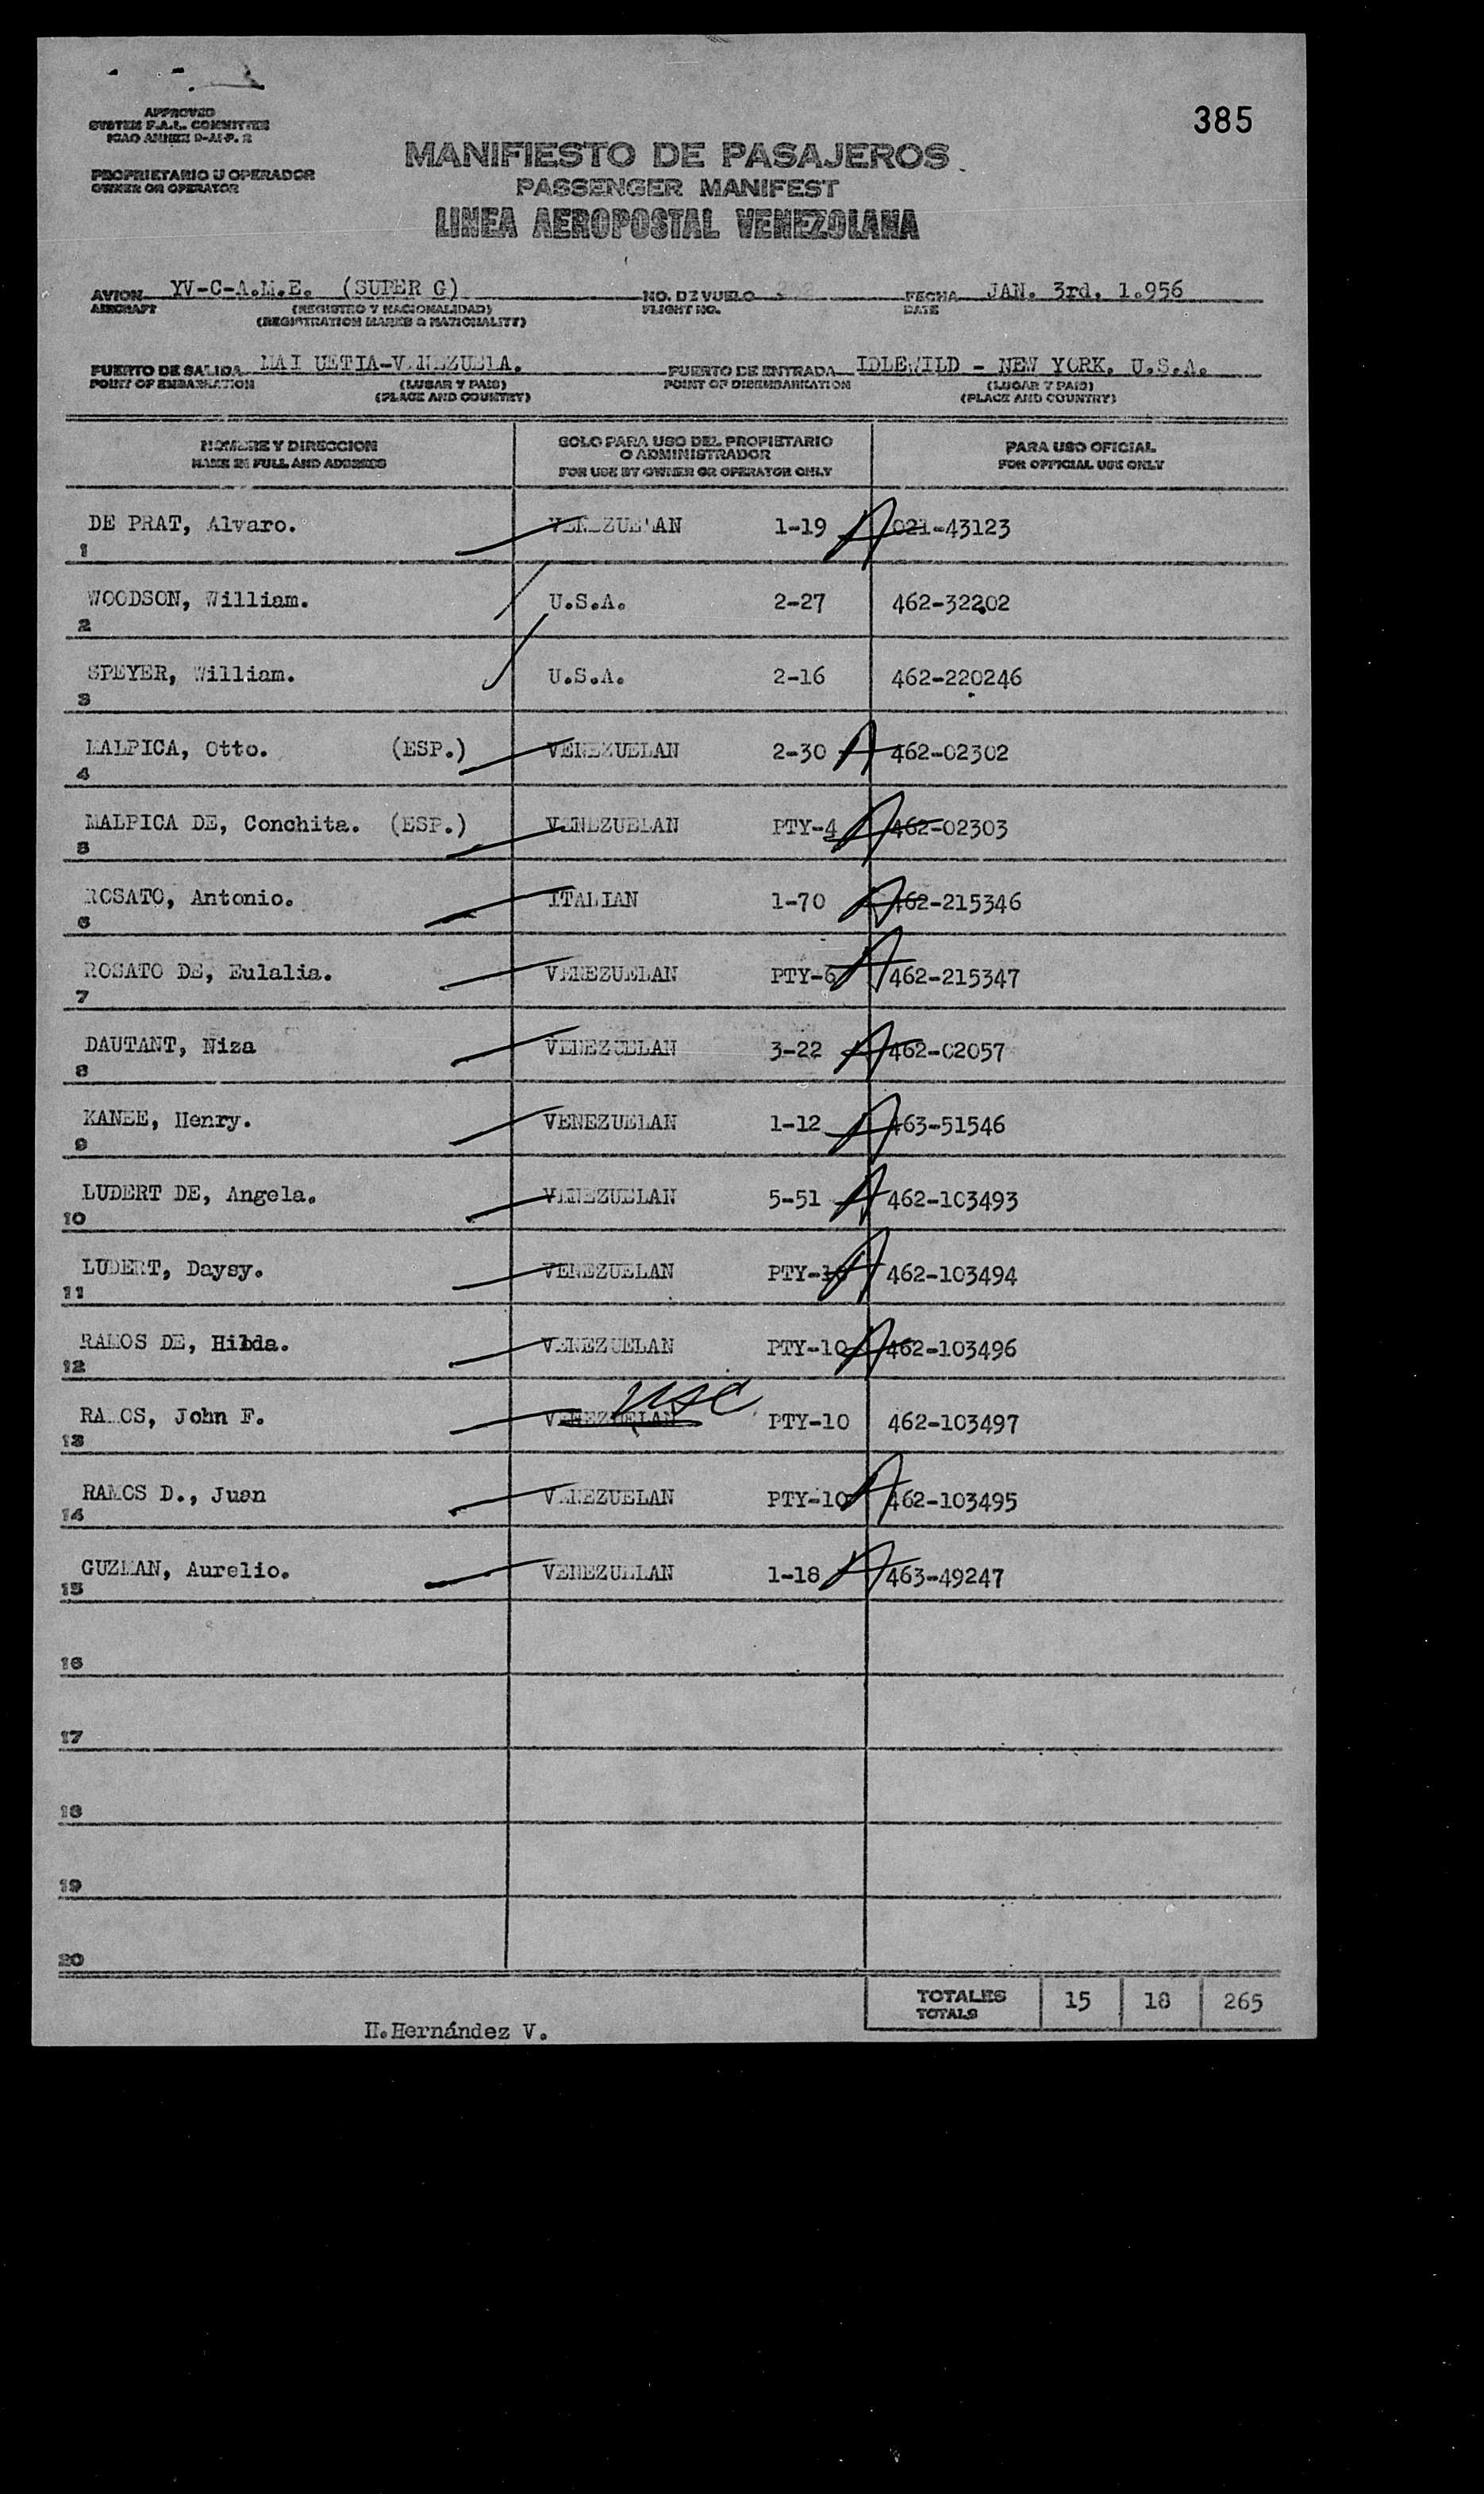 385
APPROVED
SYSTEM F.A.L. COMMITTEE
ICAO ANNEX 9-AP. 2
MANIFIESTO DE PASAJEROS
PROPRIETARIO U OPERADOR
OWNER OR OPERATOR
PASSENGER MANIFEST
LINEA AEROPOSTAL VENEZOLANA
AVION YV-C-A.M.E. (SUPER G) NO. DE VUELO 252 FECHA JAN. 3rd. 1.956
AIRCRAFT (REGISTRO Y NACIONALIDAD) FLIGHT NO. DATE
(REGISTRATION MARKS & NATIONALITY)
PUERTO DE SALIDA MAI UETIA-VENEZUELA. PUERTO DE ENTRADA IDLEWILD - NEW YORK. U.S.A.
POINT OF EMBARKATION (LUGAR Y PAIS) POINT OF DISEMBARKATION (LUGAR Y PAIS)
(PLACE AND COUNTRY) (PLACE AND COUNTRY)
NOMBRE Y DIRECCION SOLO PARA USO DEL PROPIETARIO PARA USO OFICIAL
O ADMINISTRADOR
NAME IN FULL AND ADDRESS FOR USE BY OWNER OR OPERATOR ONLY FOR OFFICIAL USE ONLY
DE PRAT, Alvaro. VENEZUELAN 1-19 A 021-43123
1
WOODSON, William. U.S.A. 2-27 462-32202
2
SPEYER, William. U.S.A. 2-16 462-220246
3
MALPICA, Otto. (ESP.) VENEZUELAN 2-30 A 462-02302
4
MALPICA DE, Conchita. (ESP.) VENEZUELAN PTY-4 A 462-02303
5
ROSATO, Antonio. ITALIAN 1-70 A 462-215346
6
ROSATO DE, Eulalia. VENEZUELAN PTY-6 A 462-215347
7
DAUTANT, Niza VENEZUELAN 3-22 A 462-02057
8
KANEE, Henry. VENEZUELAN 1-12 A 463-51546
9
LUDERT DE, Angela. VENEZUELAN 5-51 A 462-103493
10
LUDERT, Daysy. VENEZUELAN PTY-10 A 462-103494
11
RAMOS DE, Hilda. VENEZUELAN PTY-10 A 462-103496
12
usc
RAMOS, John F. VENEZUELAN PTY-10 462-103497
13
RAMOS D., Juan VENEZUELAN PTY-10 A 462-103495
14
GUZMAN, Aurelio. VENEZUELAN 1-18 A 463-49247
15
16
17
18
19
20
TOTALES 15 18 265
TOTALS
H.Hernández V.